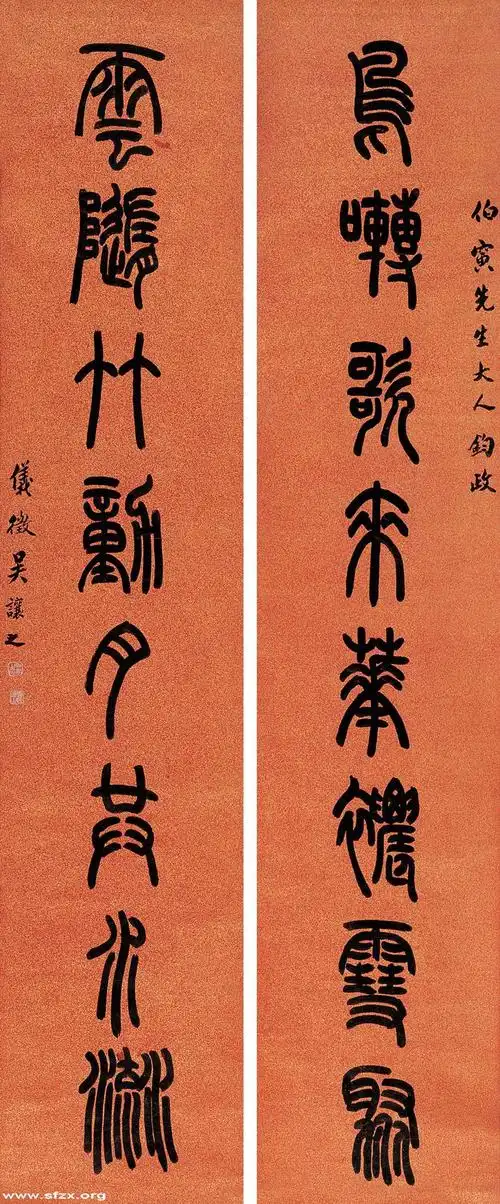 伯寅先生大人鈞政
鳥囀歌來華襛雪聚
雲隨竹動月共水流
儀徵吳讓之
www.sfzx.org